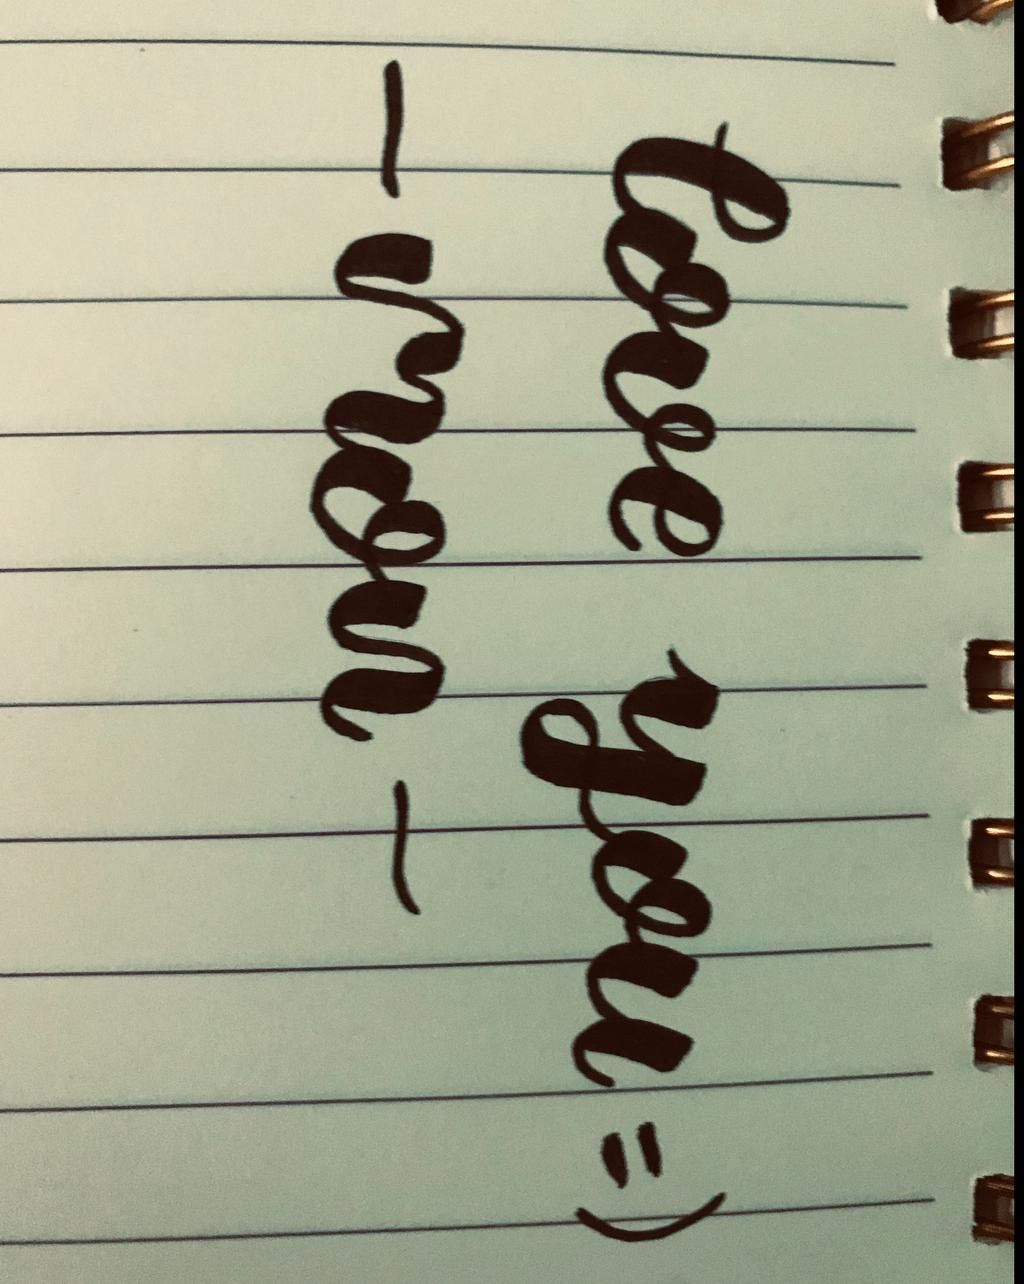 love you =)
- mom -